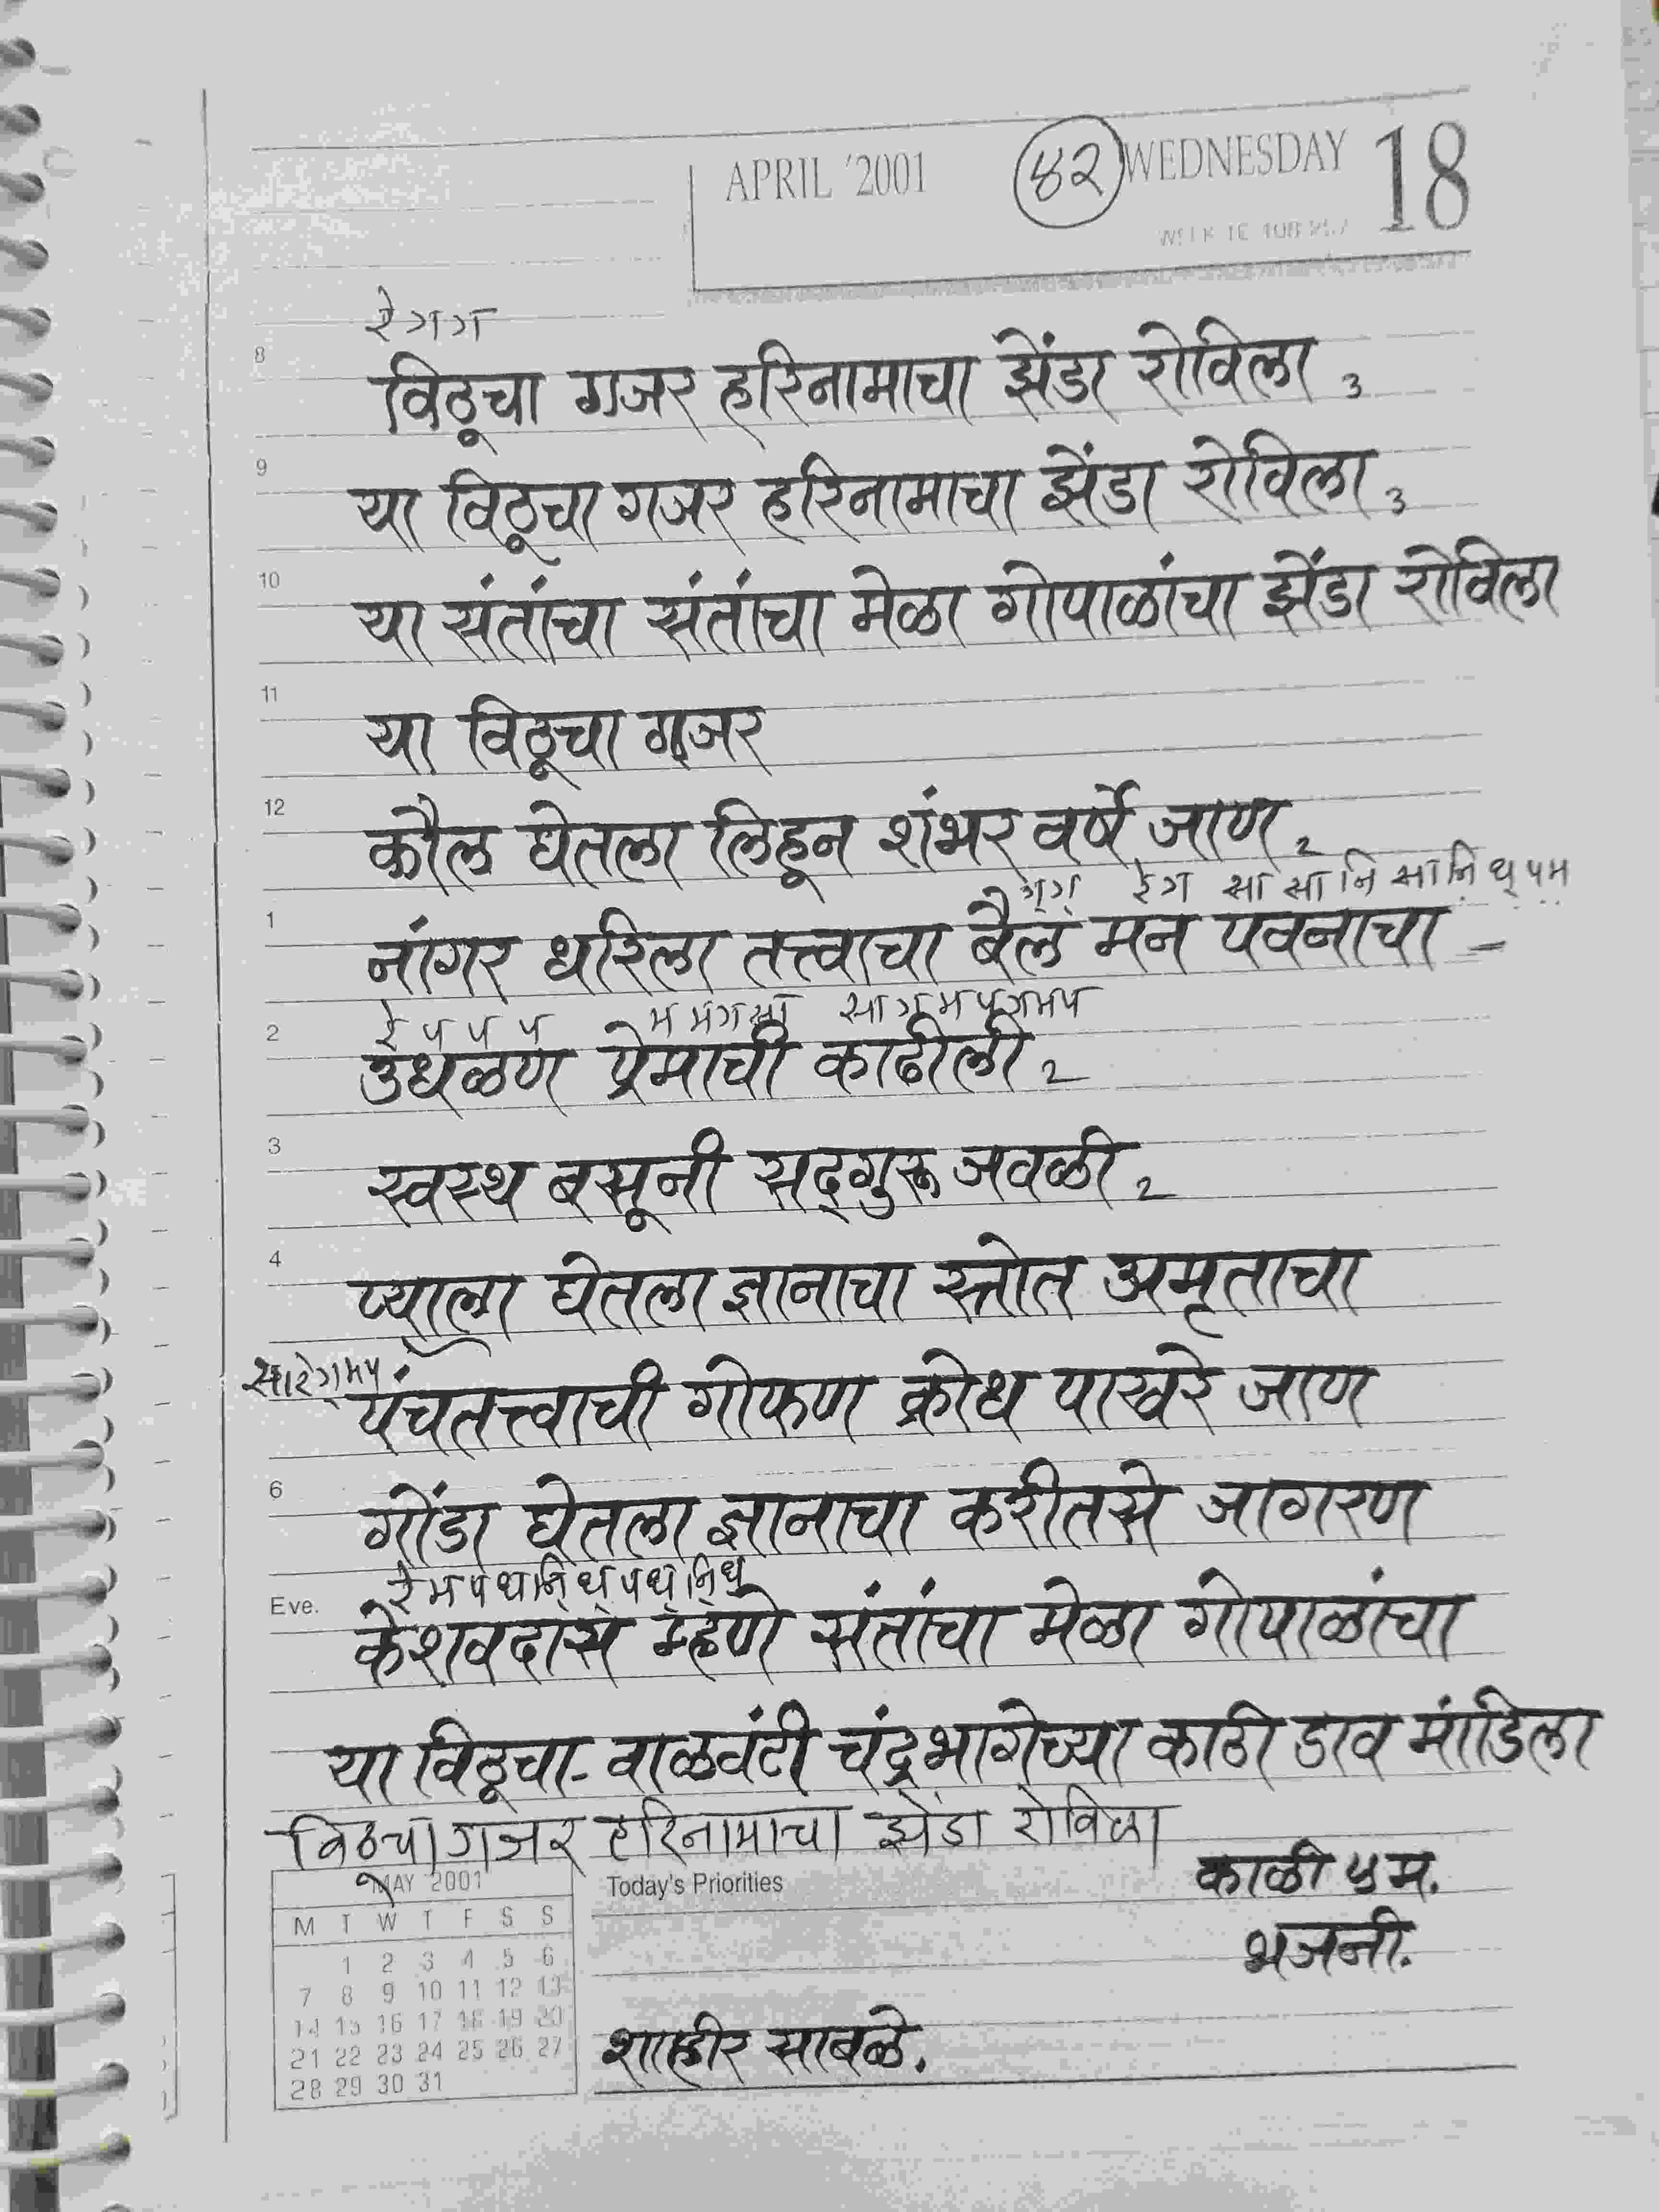 APRIL '2001 ४२ WEDNESDAY 18
रे ग ग
8 विठूचा गजर हरिनामाचा झेंडा रोविला ३
9 या विठूचा गजर हरिनामाचा झेंडा रोविला ३
10 या संतांचा संतांचा मेळा गोपाळांचा झेंडा रोविला
11 या विठूचा गजर
12 कौल घेतला लिहून शंभर वर्षे जाण २
ग् ग् रे ग सा सा नि सा नि ध् प म
1 नांगर धरिला तत्त्वाचा बैल मन पवनाचा –
रे प प प म मंगसा सा ग म प ग म प
2 उधळण प्रेमाची काढीली २
3 स्वस्थ बसूनी सद्‌गुरू जवळी २
4 प्याला घेतला ज्ञानाचा स्त्रोत अमृताचा
सारेगमप
पंचतत्त्वाची गोफण क्रोध पाखरे जाण
6 गोंडा घेतला ज्ञानाचा करीतसे जागरण
रे म प ध नि ध् प ध् नि ध्
Eve. केशवदास म्हणे संतांचा मेळा गोपाळांचा
या विठूचा - वाळवंटी चंद्रभागेच्या काठी डाव मांडिला
विठूचा गजर हरिनामाचा झेंडा रोविला
काळी ५ म.
MAY 2001 Today's Priorities
M T W T F S S
भजनी.
1 2 3 4 5 6
7 8 9 10 11 12 13
14 15 16 17 18 19 20
21 22 23 24 25 26 27
शाहीर साबळे.
28 29 30 31